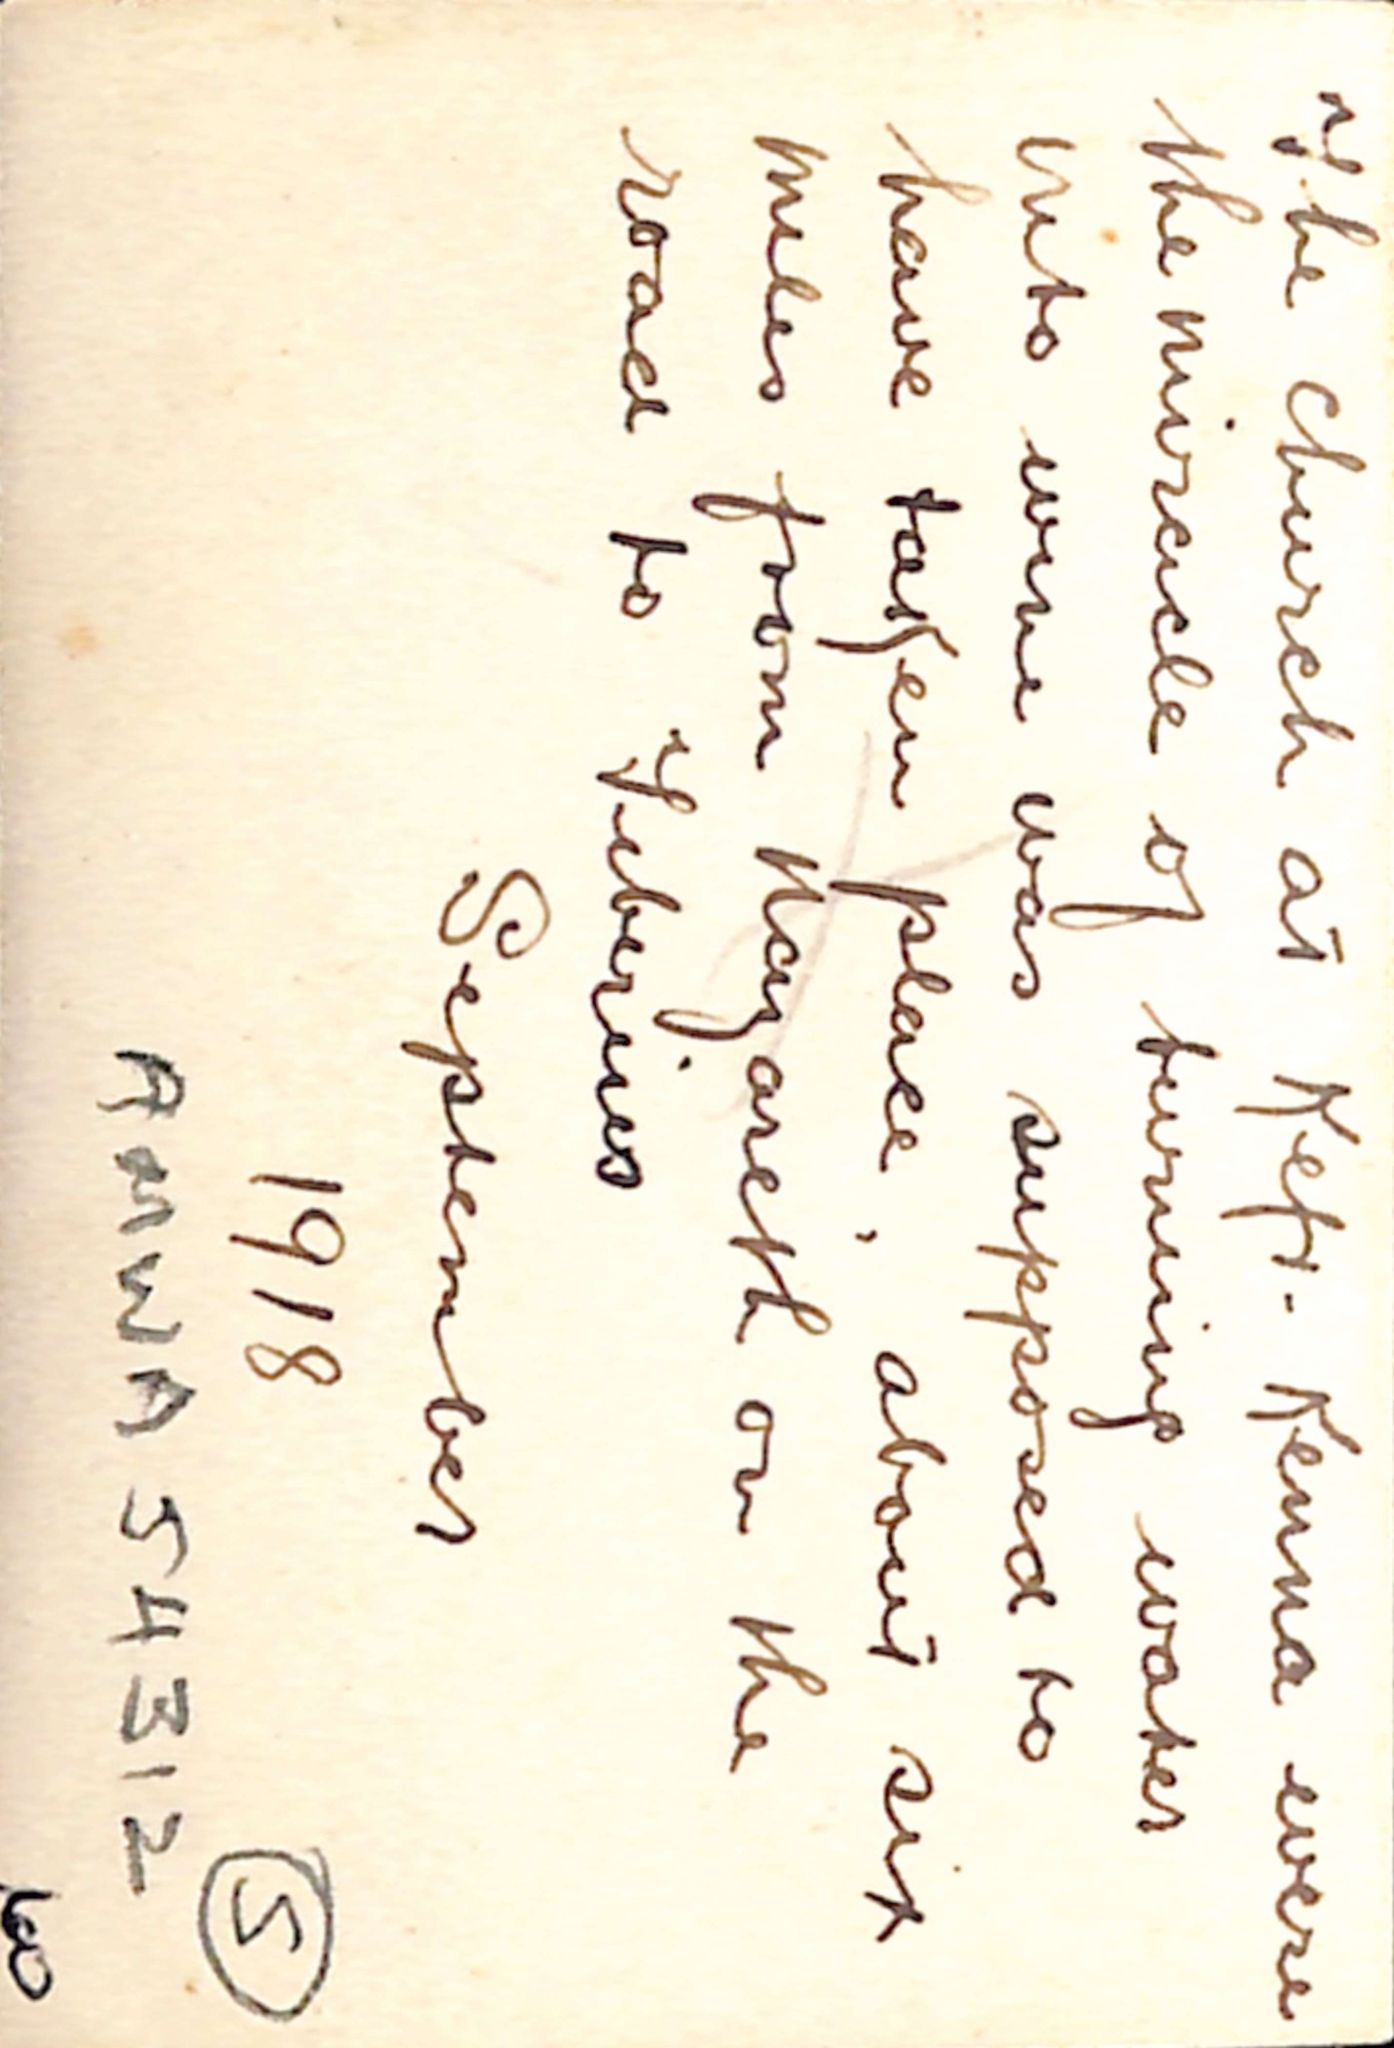 The church at Kefr-Kenna were
the miracle of turning water
into wine was supposed to
have taken place, about six
miles from Nazareth on the
road to Tiberius
September
1918
AMWA 54312
5